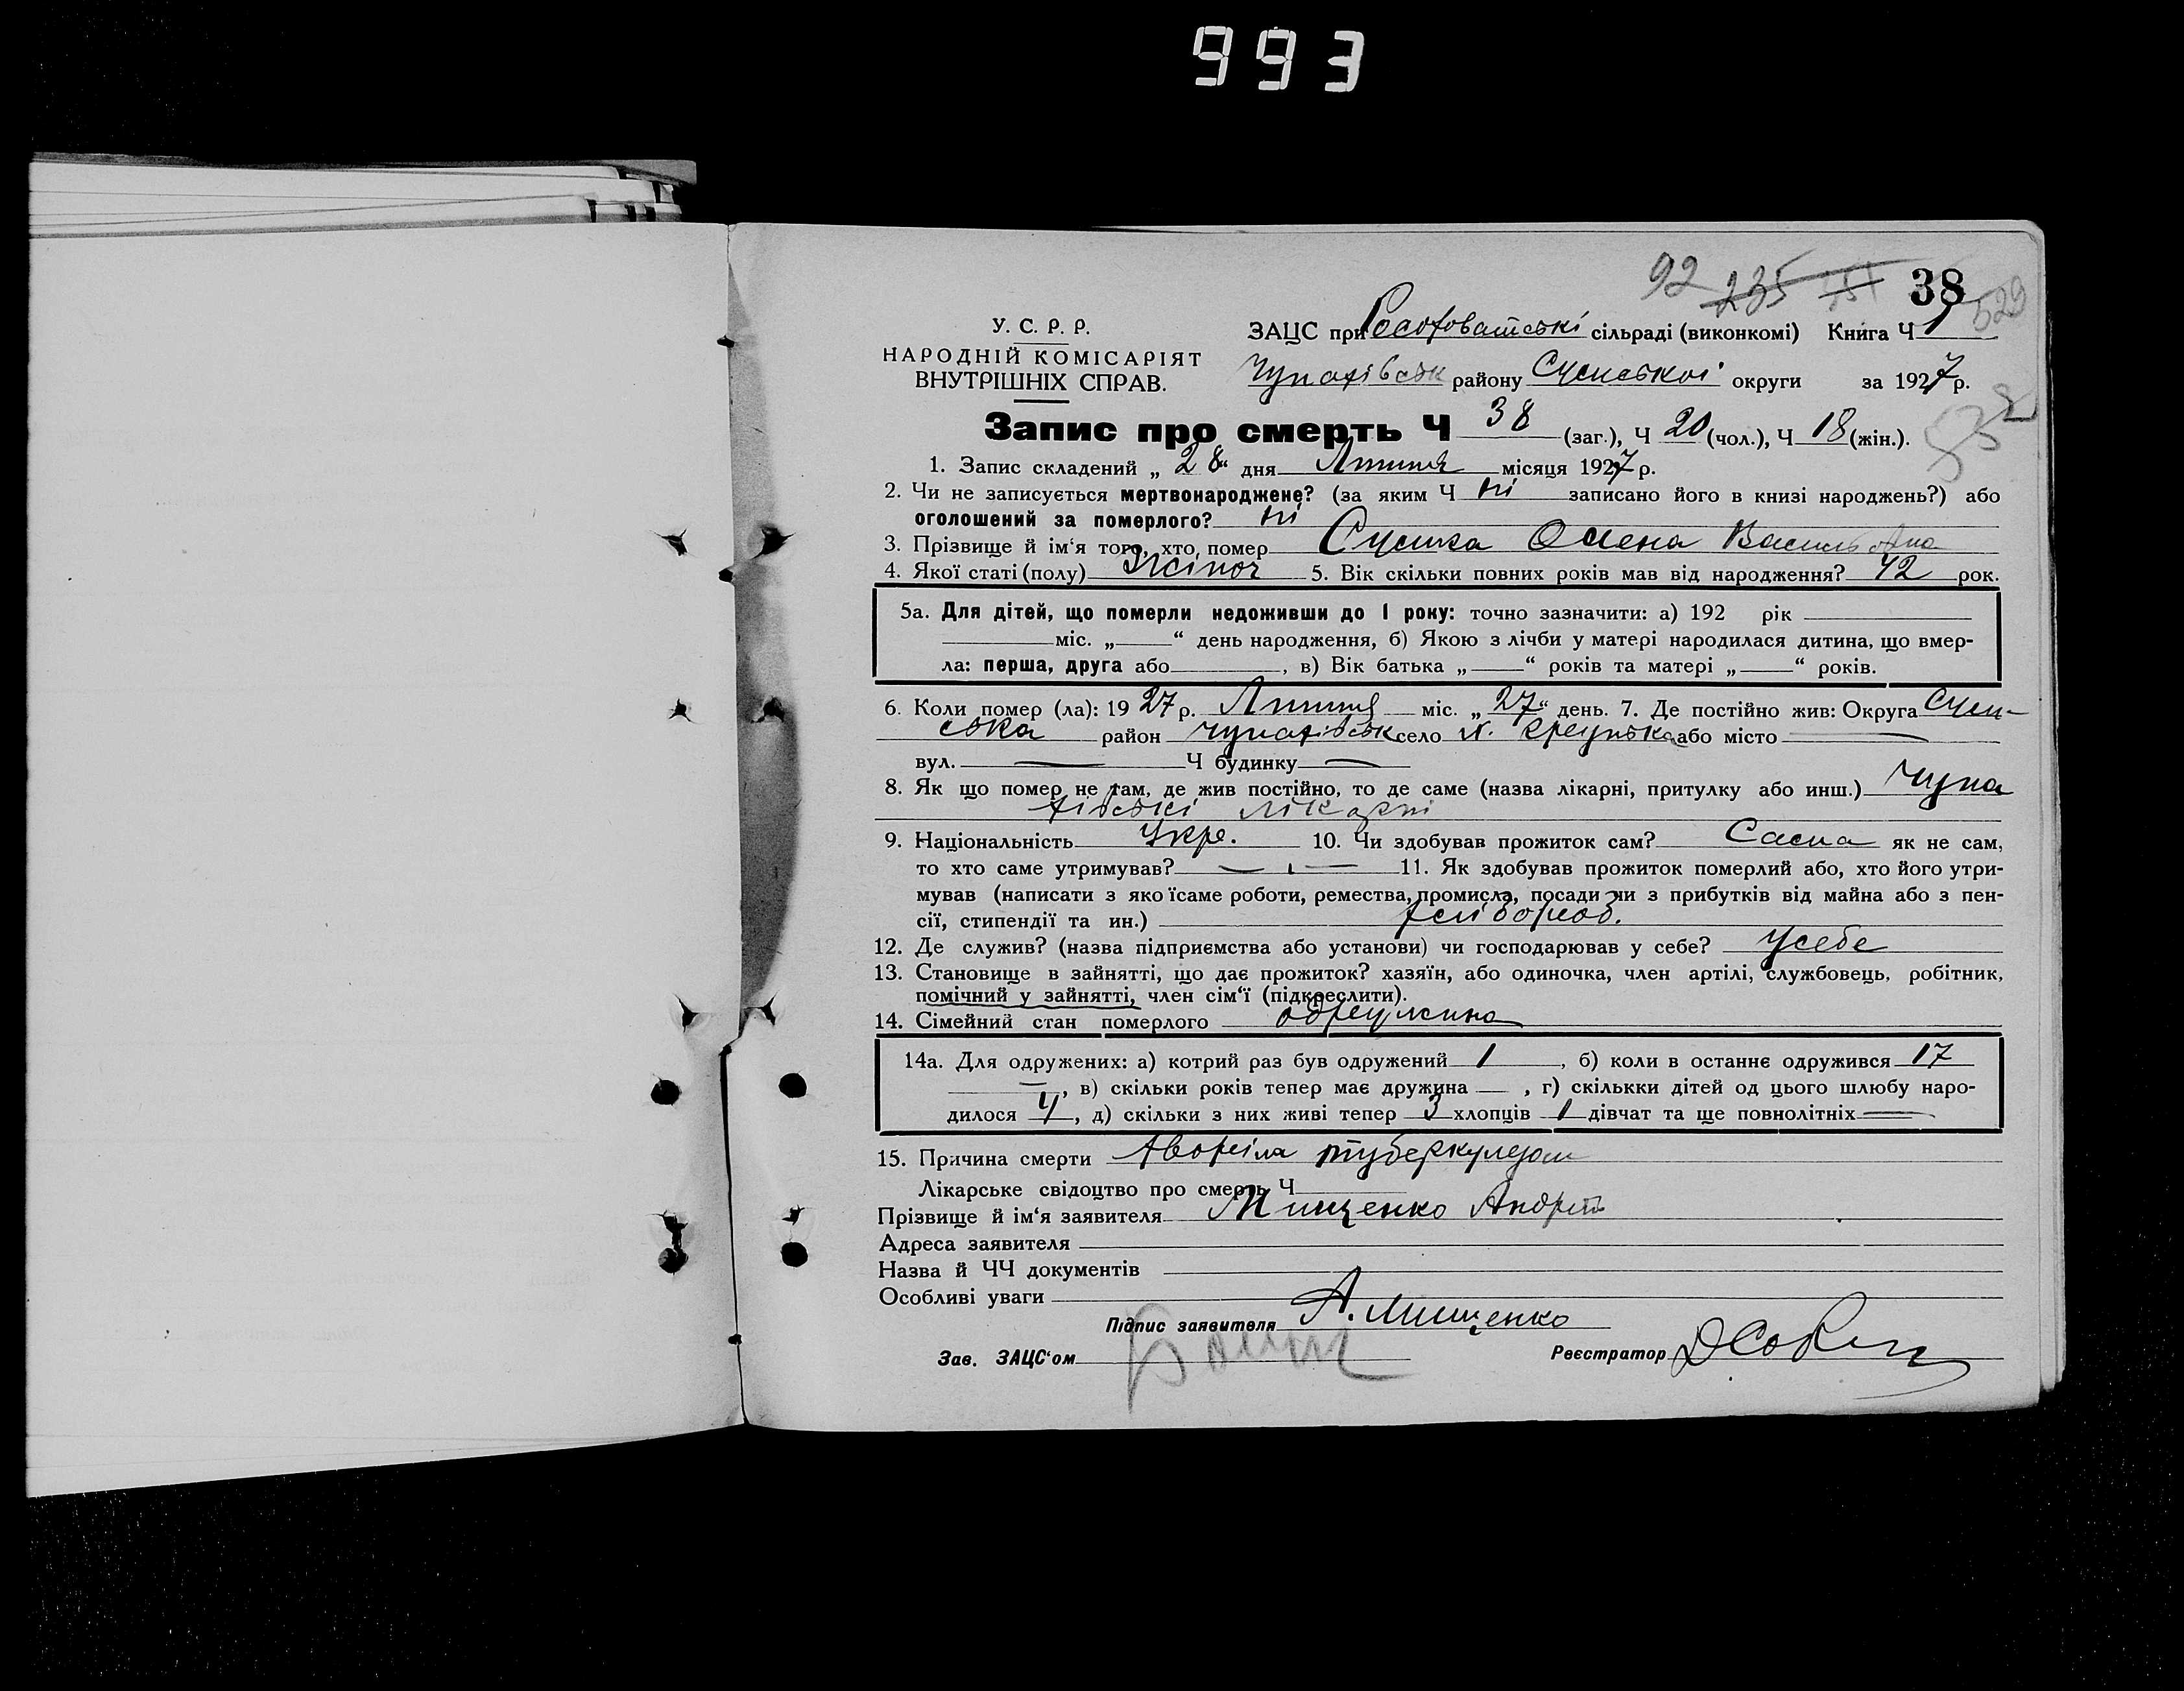 993
92 235 151 38 529
У. С. Р. Р.
НАРОДНІЙ КОМІСАРІЯТ
ВНУТРІШНІХ СПРАВ.
ЗАЦС при сільраді (виконкомі) Книга Ч 1
Чупахівськ району Сумської округи за 1927 р.
532
Запис про смерть Ч 38 (заг.), Ч 20 (чол.), Ч 18 (жін.).
1. Запис складений „ 28 “ дня Липня місяця 1927 р.
2. Чи не записується мертвонароджене? (за яким Ч ні записано його в книзі народжень?) або
оголошений за померлого? ні
3. Прізвище й ім‘я того, хто помер Сумка Олена Васильовна
4. Якої статі (полу) Жіноч 5. Вік скільки повних років мав від народження? 42 рок.
5а. Для дітей, що померли недоживши до 1 року: точно зазначити: а) 192 рік
міс. „ “ день народження, б) Якою з лічби у матері народилася дитина, що вмер-
ла: перша, друга або , в) Вік батька „ “ років та матері „ “ років.
6. Коли помер (ла): 19 27 р. Липня міс. „ 27 “ день. 7. Де постійно жив: Округа Сум-
ська район Чупахівськ село х. або місто —
вул. — Ч будинку —
8. Як що помер не там, де жив постійно, то де саме (назва лікарні, притулку або инш.) Чупа
хівські лікарні
9. Національність Укр. 10. Чи здобував прожиток сам? Сама як не сам,
то хто саме утримував? — 11. Як здобував прожиток померлий або, хто його утри-
мував (написати з яко їсаме роботи, ремества, промисла, посади чи з прибутків від майна або з пен-
сії, стипендії та ин.) хлібороб.
12. Де служив? (назва підприємства або установи) чи господарював у себе? У себе
13. Становище в зайнятті, що дає прожиток? хазяїн, або одиночка, член артілі, службовець, робітник,
помічний у зайнятті, член сім‘ї (підкреслити).
14. Сімейний стан померлого одружина
14а. Для одружених: а) котрий раз був одружений 1 , б) коли в останнє одружився 17
— , в) скільки років тепер має дружина — , г) скількки дітей од цього шлюбу наро-
дилося 4 , д) скільки з них живі тепер 3 хлопців 1 дівчат та ще повнолітніх —
15. Причина смерти хворіла туберкульозом
Лікарське свідоцтво про смерть Ч
Прізвище й ім‘я заявителя Мищенко Андрій
Адреса заявителя
Назва й ЧЧ документів
Особливі уваги
Підпис заявителя А. Мищенко
Зав. ЗАЦС‘ом
Реєстратор